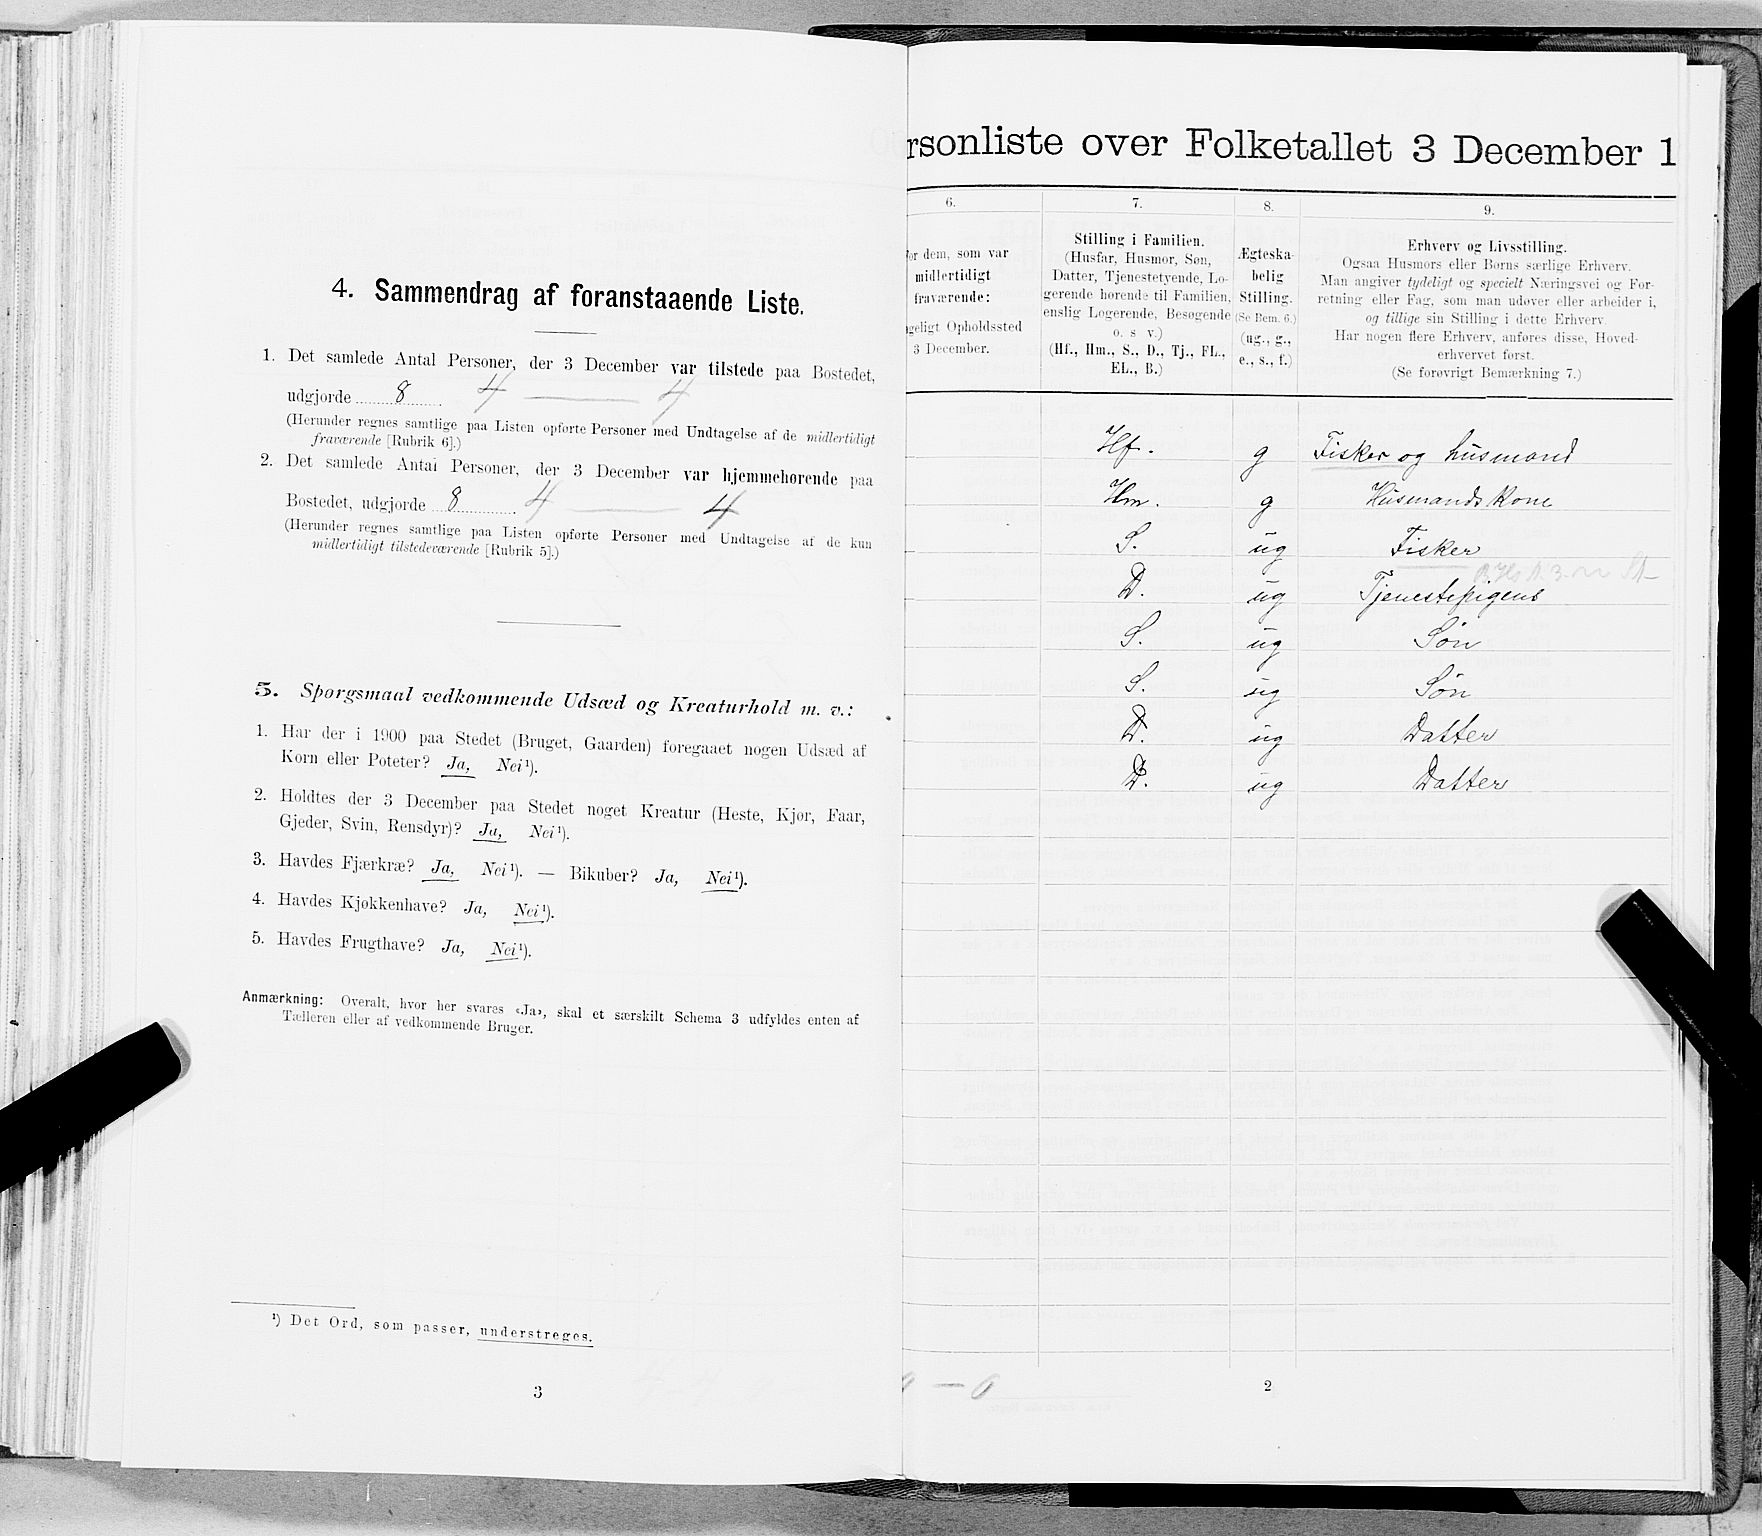 4. Sammendrag af foranstaaende Liste.
1. Det samlede Antal Personer, der 3 December var tilstede paa Bostedet,
udgjorde 8 4 — 4
(Herunder regnes samtlige paa Listen opførte Personer med Undtagelse af de midlertidigt
fraværende [Rubrik 6].)
2. Det samlede Antal Personer, der 3 December var hjemmehørende paa
Bostedet, udgjorde 8 4 — 4
(Herunder regnes samtlige paa Listen opførte Personer med Undtagelse af de kun
midlertidigt tilstedeværende [Rubrik 5].)
5. Spørgsmaal vedkommende Udsæd og Kreaturhold m. v.:
1. Har der i 1900 paa Stedet (Bruget, Gaarden) foregaaet nogen Udsæd af
Korn eller Poteter? Ja, Nei¹).
2. Holdtes der 3 December paa Stedet noget Kreatur (Heste, Kjør, Faar,
Gjeder, Svin, Rensdyr)? Ja, Nei¹).
3. Havdes Fjærkræ? Ja, Nei¹). — Bikuber? Ja, Nei¹).
4. Havdes Kjøkkenhave? Ja, Nei¹).
5. Havdes Frugthave? Ja, Nei¹).
Anmærkning: Overalt, hvor her svares «Ja», skal et særskilt Schema 3 udfyldes enten af
Tælleren eller af vedkommende Bruger.
¹) Det Ord, som passer, understreges.
3
rsonliste over Folketallet 3 December 1
6. 7. 8. 9.
or dem, som var
midlertidigt
fraværende:
geligt Opholdssted
3 December.
Stilling i Familien.
(Husfar, Husmor, Søn,
Datter, Tjenestetyende, Lo-
gerende hørende til Familien,
enslig Logerende, Besøgende
o. s v.)
(Hf., Hm., S., D., Tj., FL.,
EL., B.)
Ægteska-
belig
Stilling.
(Se Bem. 6.)
(ug., g.,
e., s., f.)
Erhverv og Livsstilling.
Ogsaa Husmors eller Børns særlige Erhverv.
Man angiver tydeligt og specielt Næringsvei og For-
retning eller Fag, som man udøver eller arbeider i,
og tillige sin Stilling i dette Erhverv.
Har nogen flere Erhverv, anføres disse, Hoved-
erhvervet først.
(Se forøvrigt Bemærkning 7.)
Hf. g Fisker og husmand
Hm. g Husmandskone
S. ug Fisker
D. ug Tjenestepigens
S. ug Søn
S. ug Søn
D. ug Datter
D. ug Datter
0 — 0
2